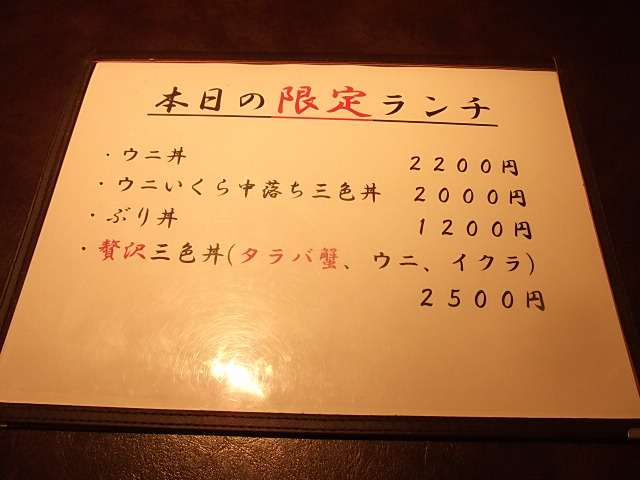 本日の限定ランチ
・ウニ丼 2200円
・ウニいくら中落ち三色丼 2000円
・ぶり丼 1200円
・贅沢三色丼(タラバ蟹、ウニ、イクラ)
2500円